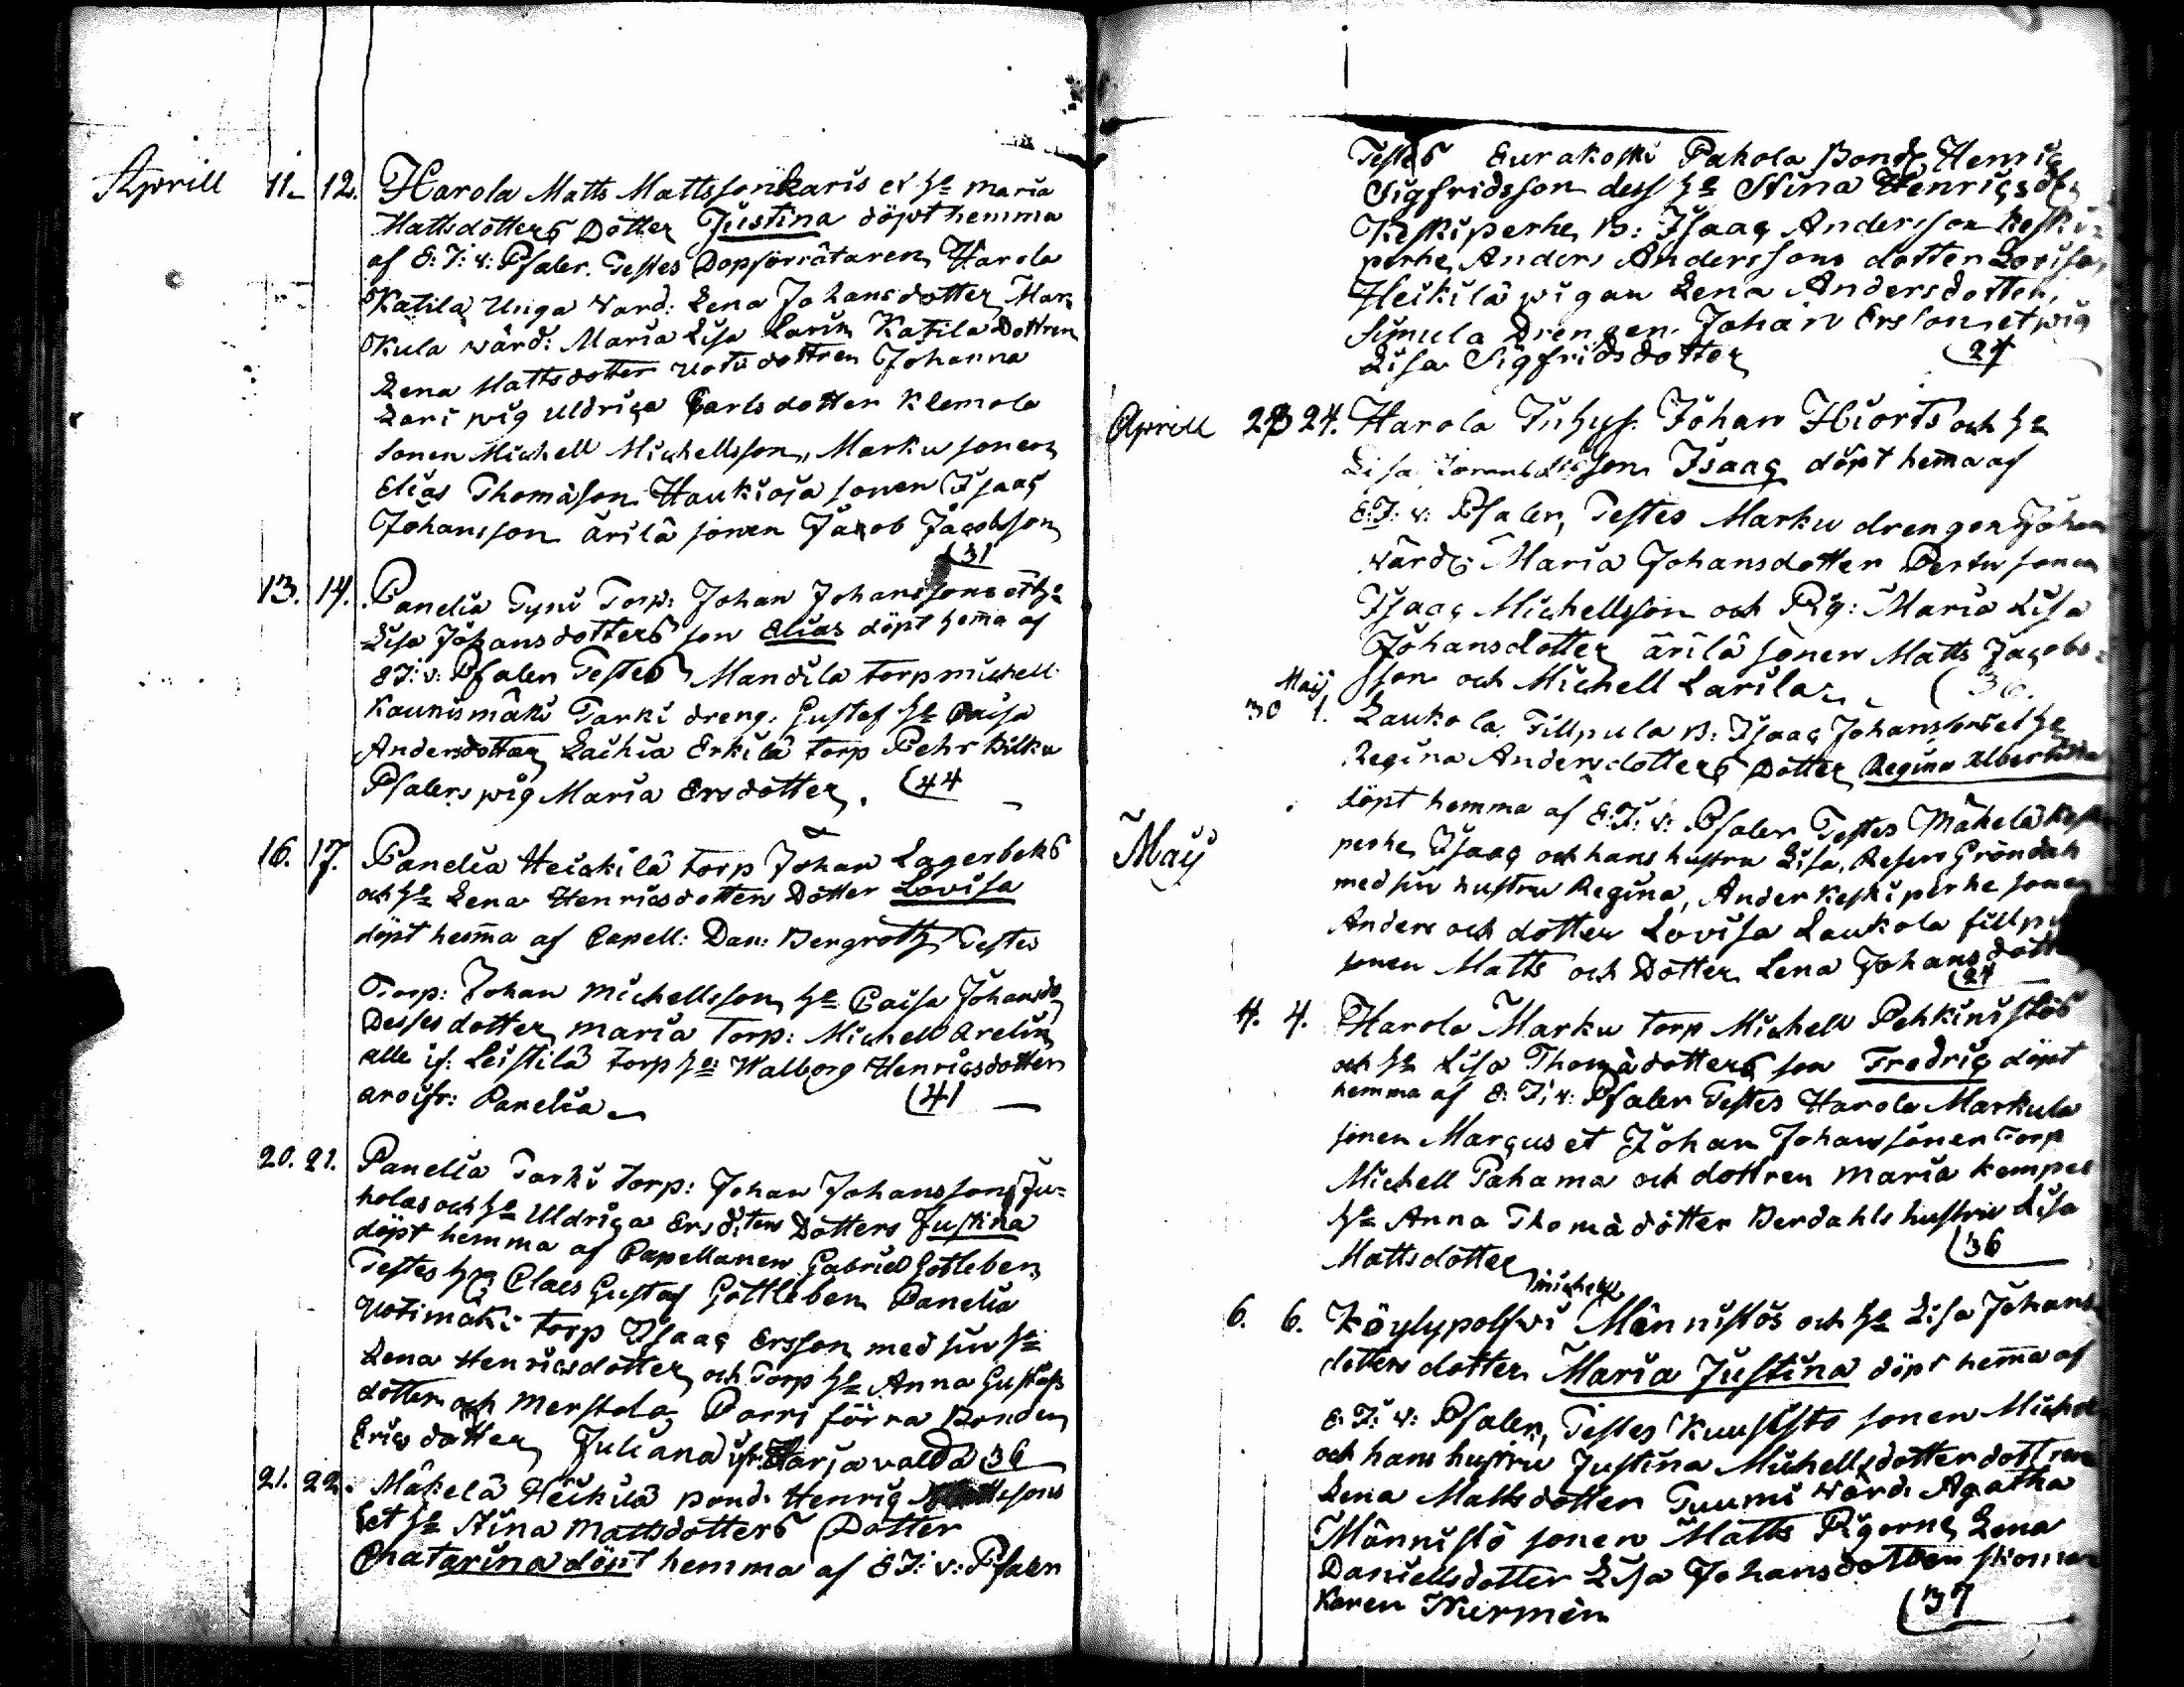 Aprill 11. 12. Harola Matts Mattsson Karis et hu Maria
Mattsdotters Dotter Justina döpt hemma
af E: I: v: Pfaler. Testes Dopförrätaren, Harola
Katila Unga värd: Lena Johansdotter, Mar-
kula värd: Maria Lisa Larin Katila Dottren
Lena Mattsdotter Uoti dottren Johanna
Lari pig Uldrica Carlsdotter Klemola
sonen Michell Michellsson, Marku sonen
Elias Thomäson Haukioja sonen Isaac
Johansson ärilä sonen Jacob Jacobsson
(31
13. 14. Panelia Tyni Torp: Johan Johanssons et hu
Lisa Johansdotters son Elias döpt hemma af
E I: v: Pfaler Testes Mandila torp michell
Kaunismäki Tarki dreng: Gustaf hu Caisa
Andersdotter Laihia Erkilä torp Pehr Hilku
Pfalers pig Maria Ersdotter. (44
16. 17. Panelia Heickilä torp Johan Lagerbeks
och hu Lena Henricsdotters Dotter Lovisa
döpt hemma af Capell: Dan: Bergroth, Testes
Torp: Johan Michellsson, hu Caisa Johansdo
Desses dotter maria Torp: Michell Arelin
alle if: Leistilä torp hu: Walborg Henricsdotter
Panelia (41
20. 21. Panelia Tarki torp: Johan Johansson Ju=
holas och hu Uldrica Ersdoters Dotters Justina
döpt hemma af Capellanen Gabriel Gotleben
Testes Claes Gustaf Gottleben Panelia
Uotimäki torp Isaac Ersson med sin hu
Lena Henricsdotter och Torp hu Anna Gustafs
dotter och Merstola Porri förra Bonden
Erics dotter Juliana ifr: Harjavalda 36
21. 22. Mäkelä Heikilä Bond: Henric sons
et hu Stina Mattsdotters Dotter
Chatarina döpt hemma af E I: v: Pfaler
Testes Eurakoski Pakola Bond: Henric
Sigfridsson dess hu Stina Henricsdr
Keskiperhe B: Isaac Andersson Keski-
perhe Anders Anderssons dotter Lovisa,
Heikilä pigan Lena Andersdotter,
Simula Drengen Johan Ersson et pig
Lisa Sigfridsdotter (24
Aprill 23 24. Harola Inhys: Johan Hiorts och hu
Lisa son Isaac döpt hemma af
E: I: v: Pfaler, Testes Marku drengen Johan
värd: Maria Johansdotter Pertu sonen
Isaac Michellsson och Pig: Maria Lisa
Johansdotter ärilä sonen Matts Jacobs=
son och Michell Larila (36.
Maij
30 1. Laukola Tillpula B: Isaac Johanssons et hu
Regina Andersdotters Dotter Regina Albertina
döpt hemma af E: I: v: Pfaler Testes Mäkelä Keski
perhe Isaac och hans hustru Lisa, Refers Gröndah
med sin hustru Regina, Anders Keskiperhe sonen
Maij
Anders och dotter Lovisa Laukola tillpu
sonen Matts och Dotter Lena Johansdotte
(24
4. 4. Harola Marku torp Michell Pehkinistös
och hu Lisa Thomädotters son Fredric döpt
hemma af E: I: v: Pfaler Testes Harola Markula
sonen Marcus et Johan Johanssoner Torp
Michell Pahama och dottren Maria Kempes
hu Anna Thomädotter Berdahls hustru Lisa
Mattsdotter (36
michell
6. 6. Köylypolfvi Männistös och hu Lisa Johans
dotters dotter Maria Justina döpt hemma af
E: I: v: Pfaler, Testes Kuusisto sonen Michel
och hans hustru Justina Michellsdotter dottren
Lena Mattsdotter Tuumi värd: Agatha
Männistö sonen Matts Pigorne Lena
Daniellsdotter Lisa Johansdotter skoma
karen Nurmèn (37